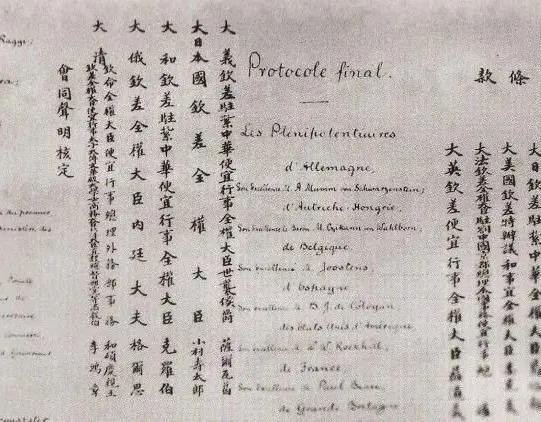 條款
大日
大美國欽差特辦議和事宜全權大臣柔克義
大法欽差全權大臣駐劄中國京都總理本國事務便宜行事鮑
大英欽差便宜行事全權大臣薩道義
Protocole final.
Les Plénipotentiaires
d'Allemagne,
Son Excellence M. A. Mumm von Schwarzenstein;
d'Autriche-Hongrie,
Son Excellence le Baron M. Czikann von Wahlborn;
de Belgique,
Son Excellence M. Joostens;
d'Espagne
Son Excellence M. B. J. de Cologan
des Etats Unis d'Amérique
Son Excellence M. W. W. Rockhill
de France
Son Excellence M. Paul Beau
de Grande Bretagne
大義欽差駐紮中華便宜行事全權大臣世襲侯爵薩爾瓦葛
大日本國欽差全權大臣小村壽太郎
大和欽差駐紮中華便宜行事全權大臣克羅伯
大俄欽差全權大臣內廷大夫格爾思
大清
欽命全權大臣便宜行事總理外務部事務和碩慶親王
欽差全權大臣便宜行事太子太傅文華殿大學士商務大臣北洋大臣直隸總督部堂一等肅毅伯李鴻章
會同聲明核定
Raggi;